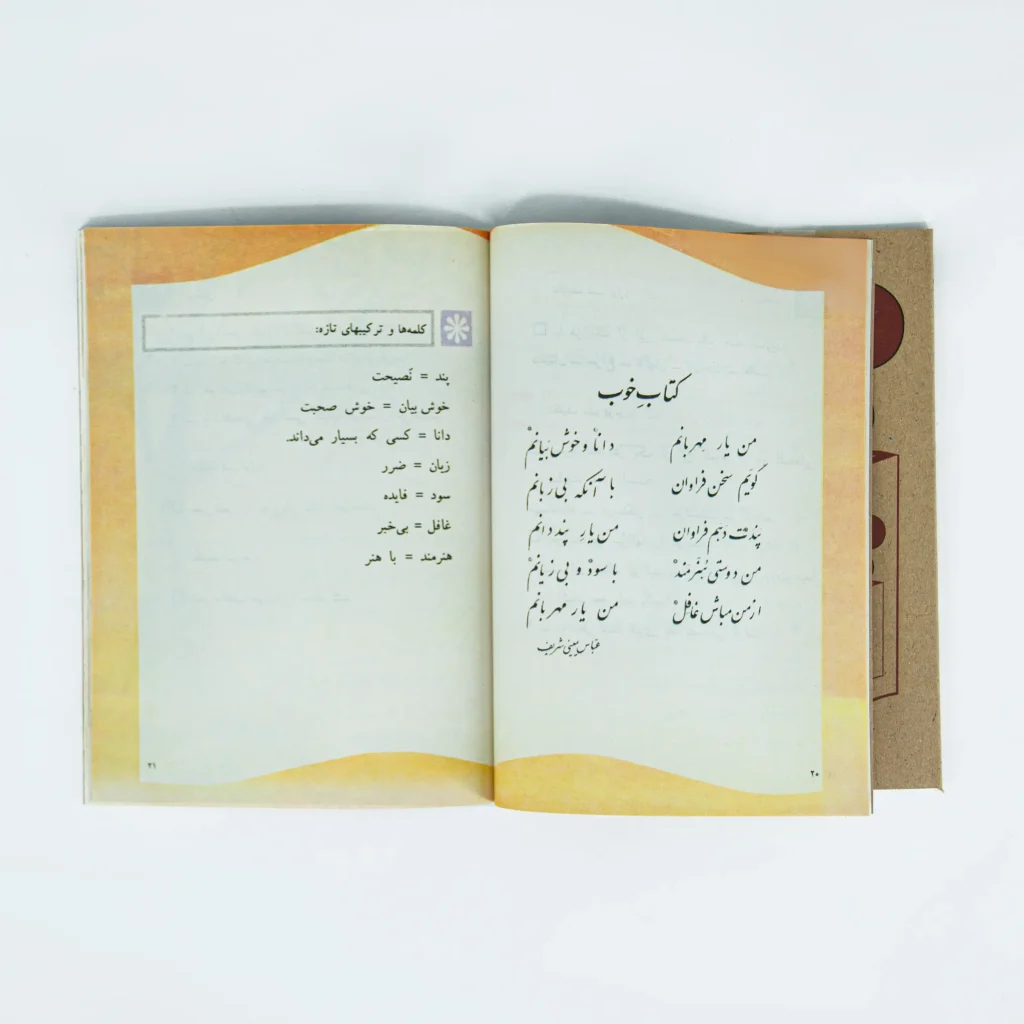 کتابِ خوب
من یار مهربانم داناْ و خوش بَیانمْ
گویَم سخن فراوان با آنکه بی زبانم
پندت دهم فراوان من یارِ پند دانم
من دوستی هُنَرمندْ با سودْ و بی زیانمْ
از من مباش غافلْ من یار مهربانم
عبّاس یمینی شریف
۲۰
کلمه‌ها و ترکیبهای تازه:
پند = نَصیحت
خوش بیان = خوش صحبت
دانا = کسی که بسیار می‌داند.
زیان = ضرر
سود = فایده
غافل = بی‌خبر
هنرمند = با هنر
۲۱